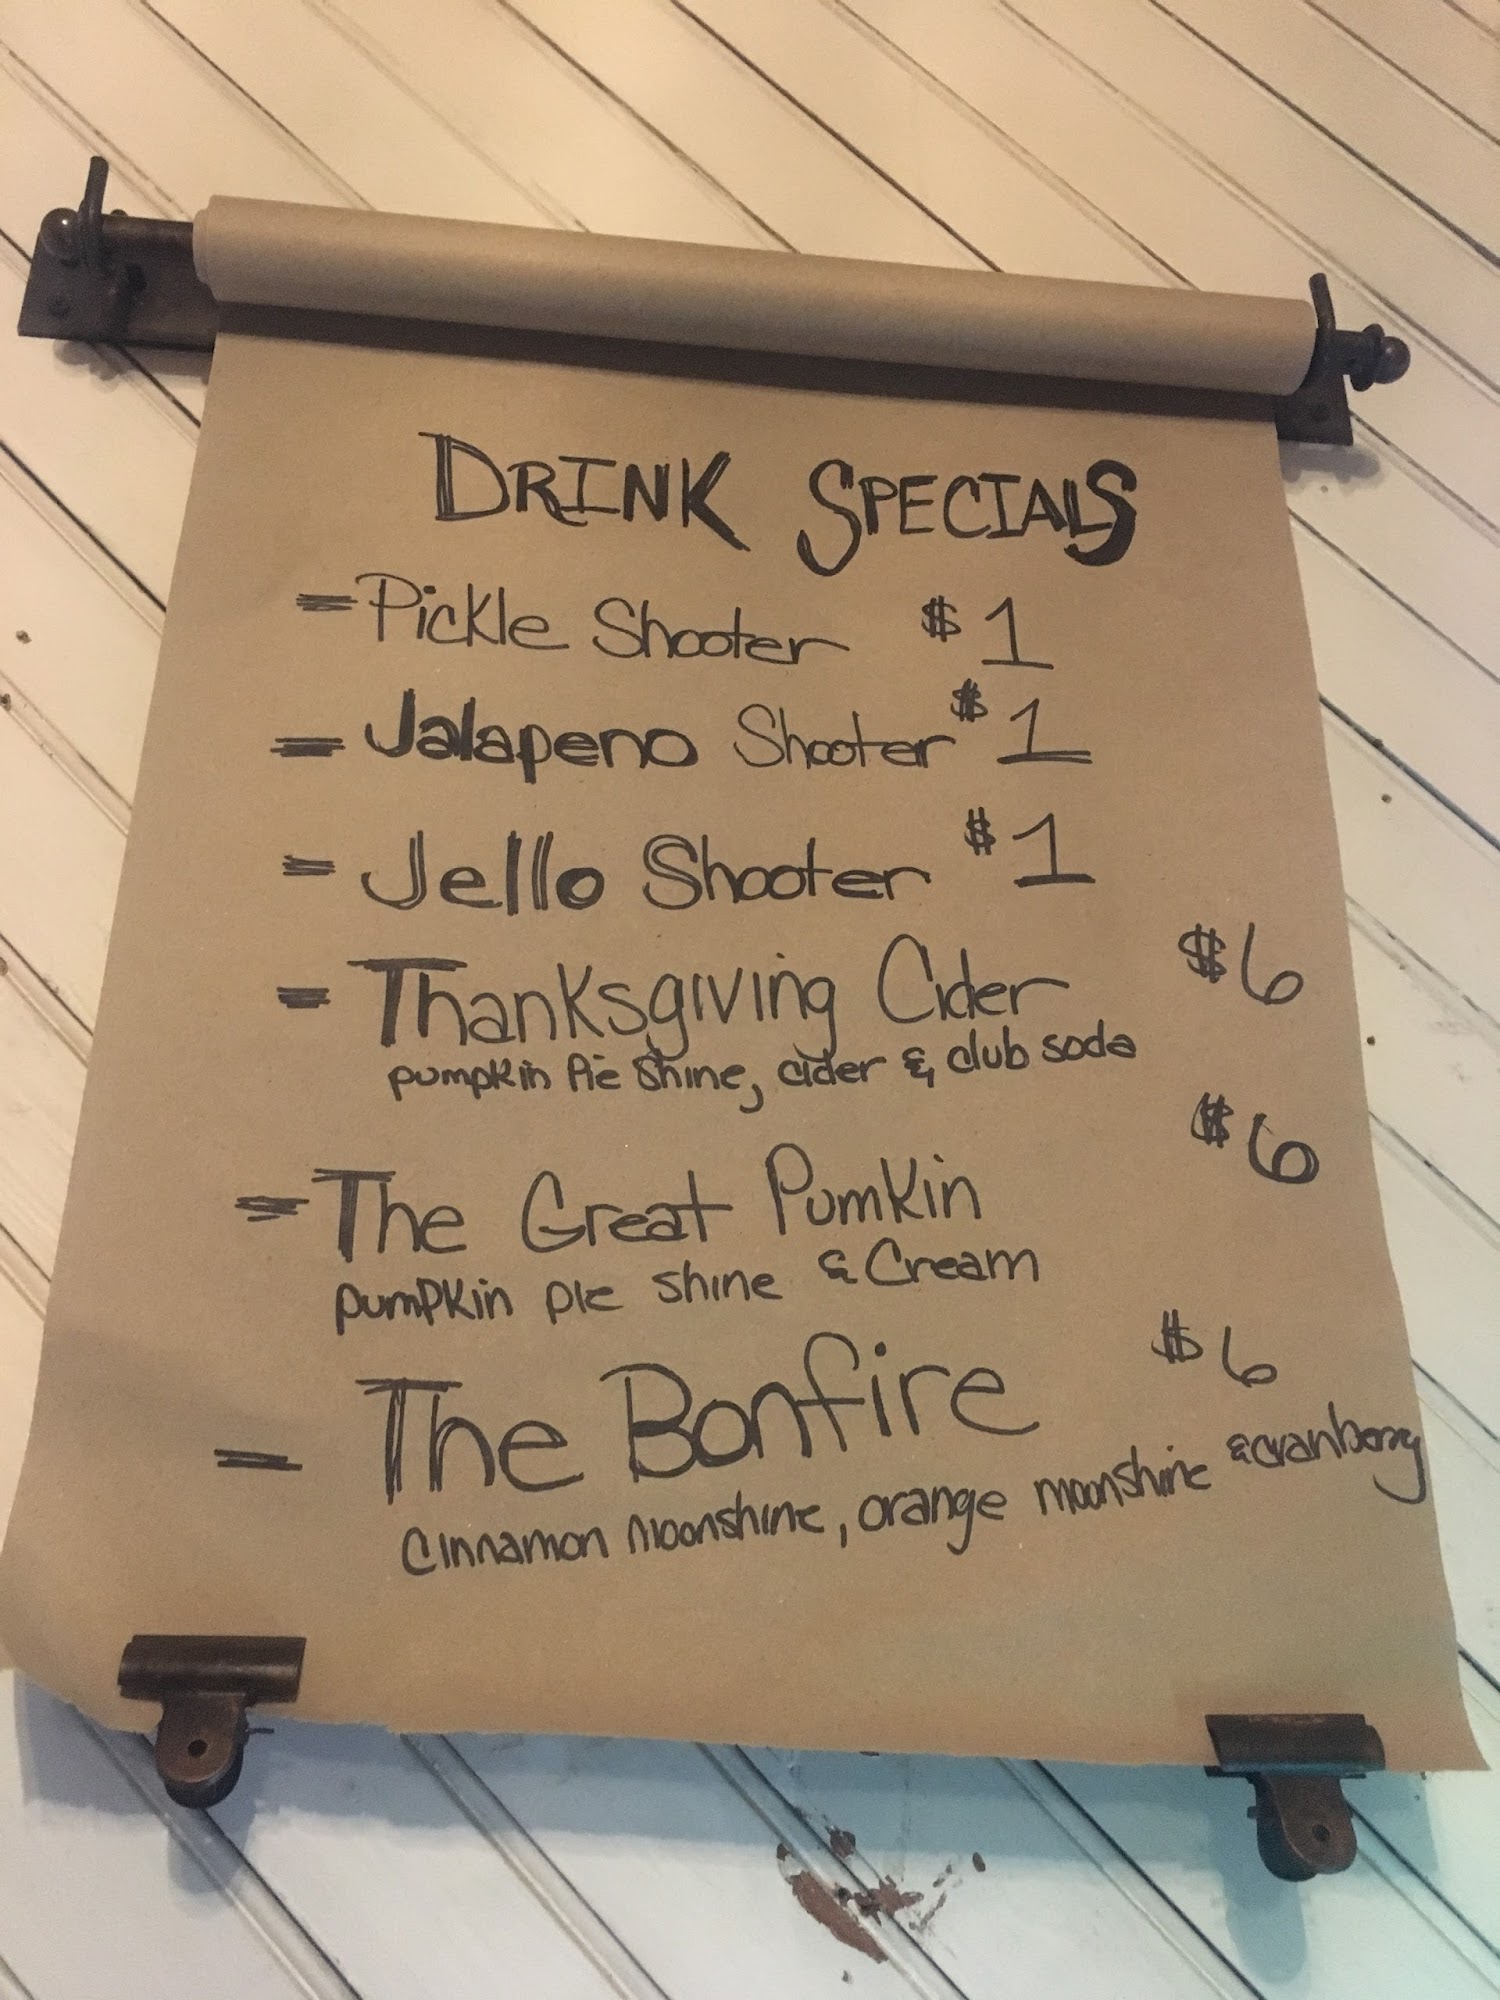 DRINK SPECIALS
= Pickle Shooter $1
= Jalapeno Shooter $1
= Jello Shooter $1
= Thanksgiving Cider $6
pumpkin Pie Shine, cider & club soda
= The Great Pumkin $6
pumpkin pie shine & Cream
= The Bonfire $6
cinnamon moonshine, orange moonshine & cranberry